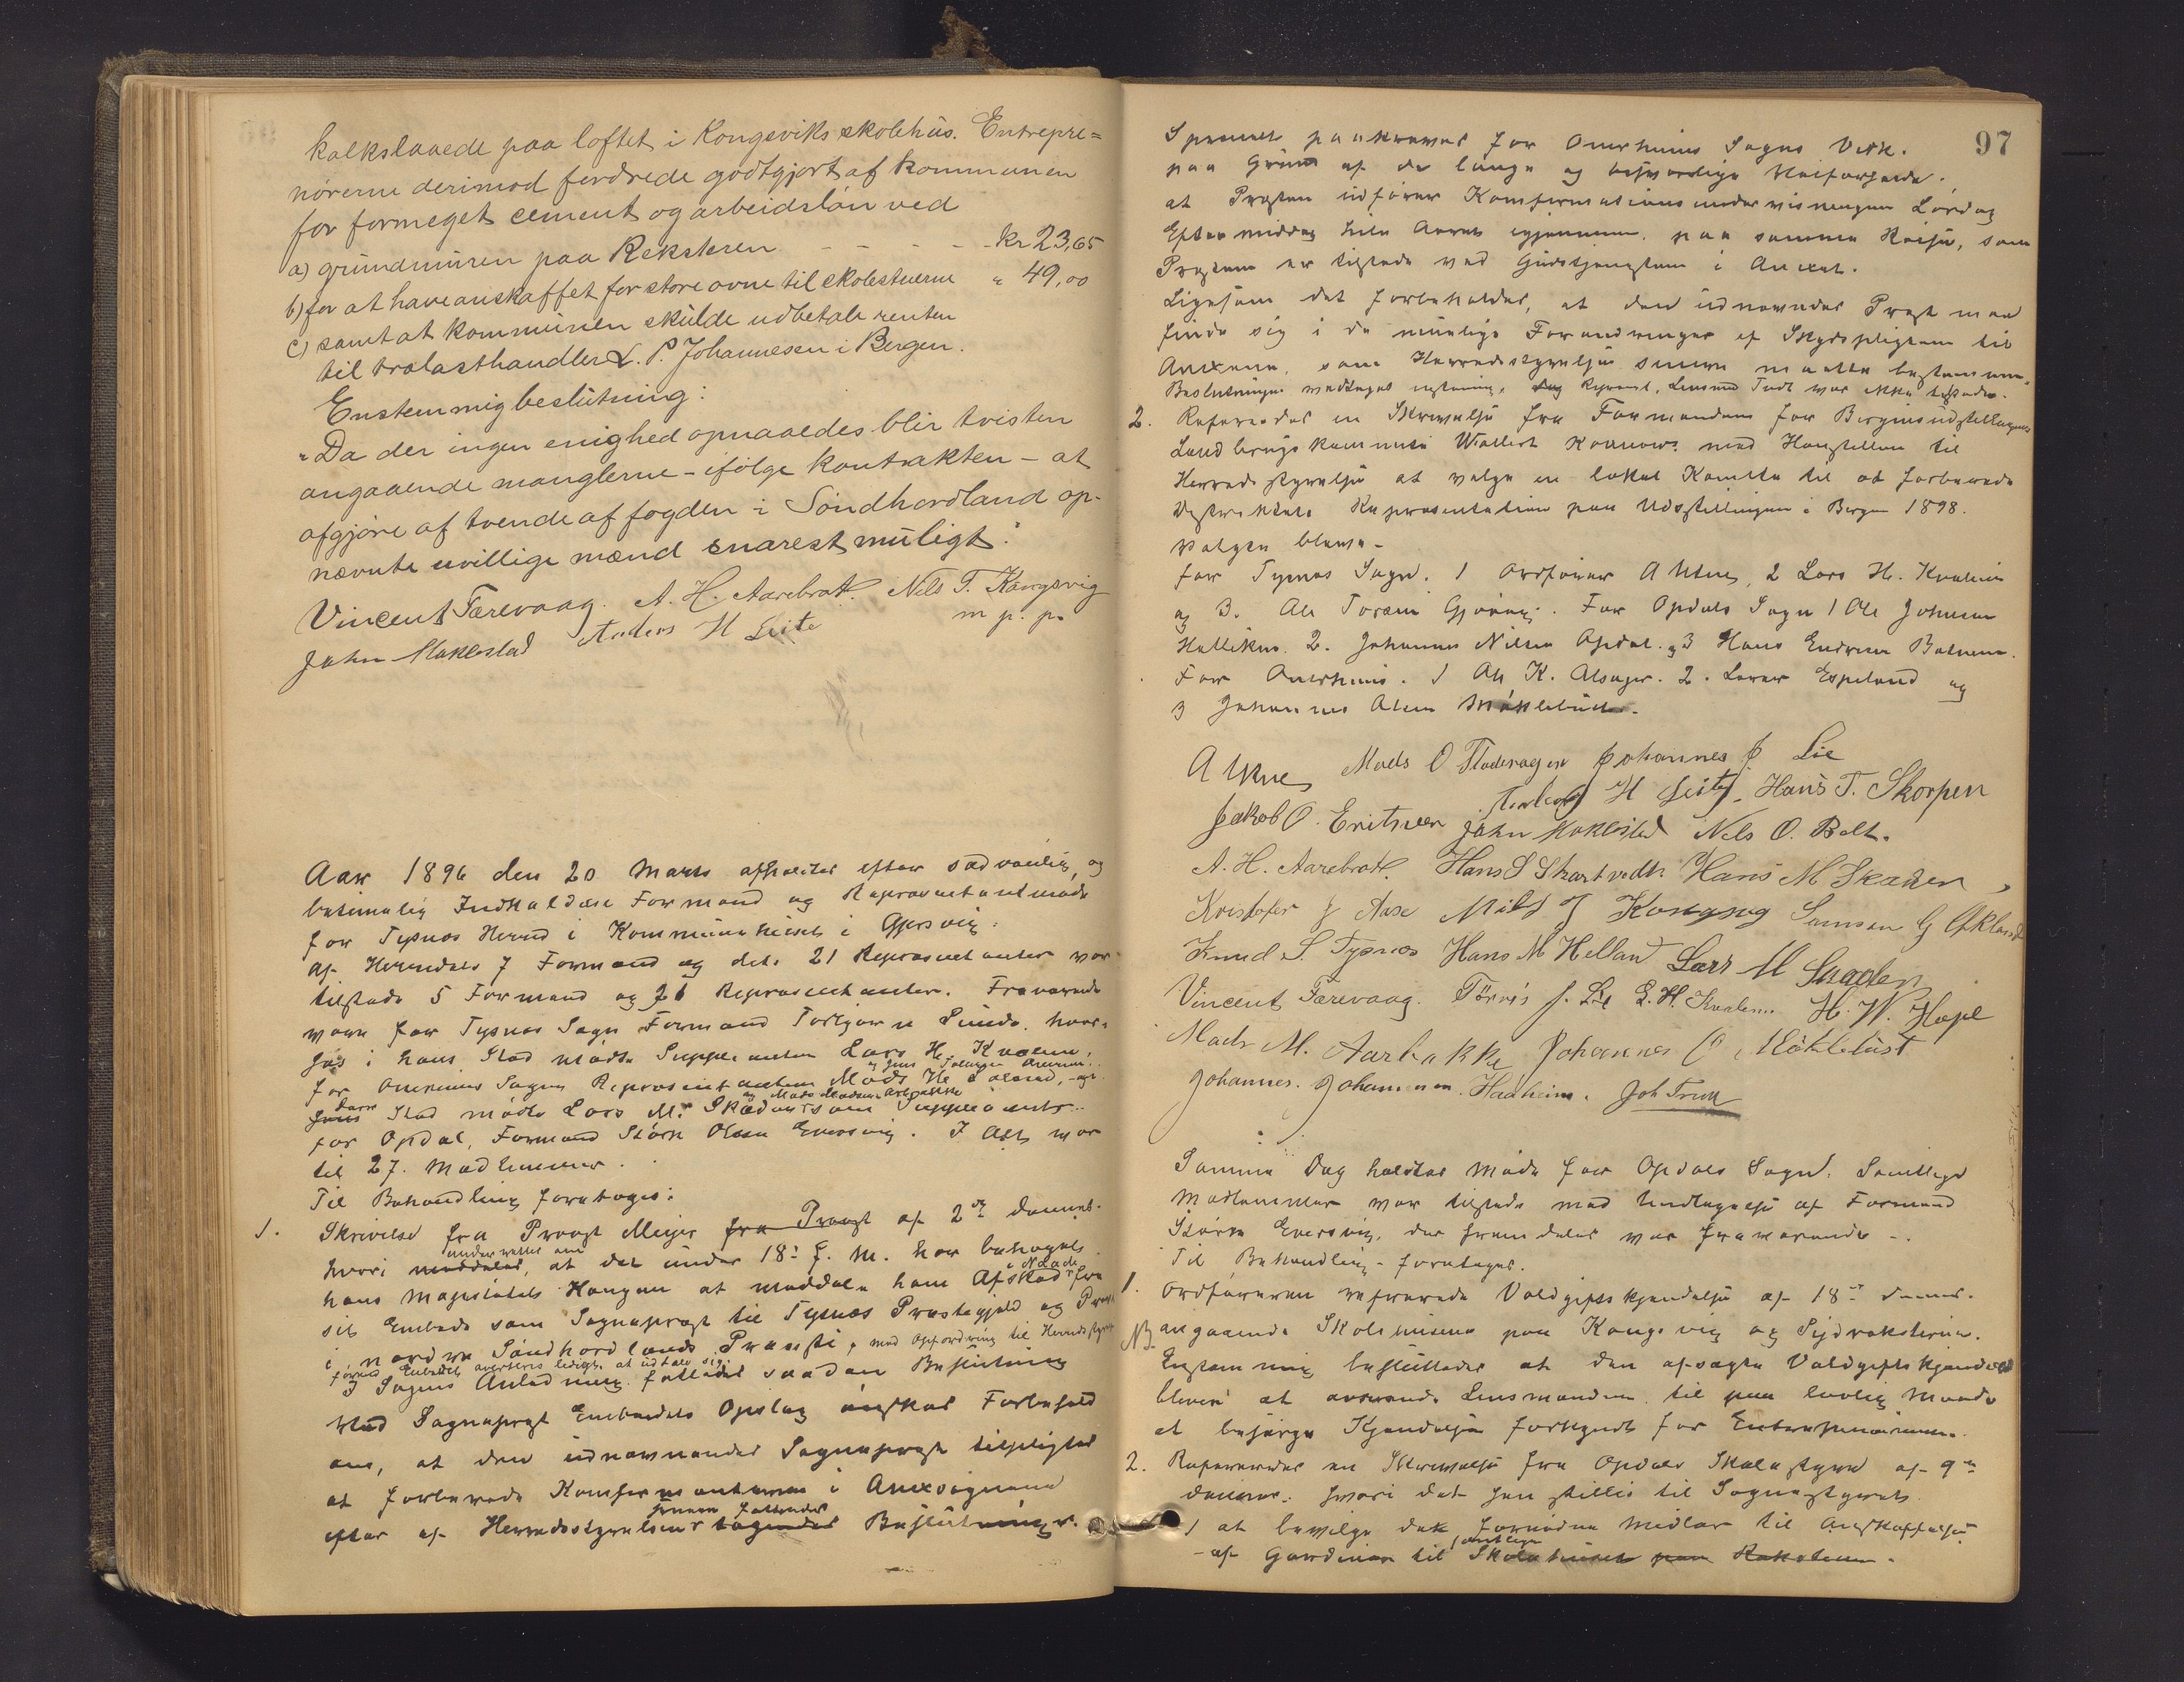 kalkslaaede paa loftet i Kongsviks skolehus. Entrepre=
nörerne derimod fordrede godtgjort af kommunen
for formeget cement og arbeidslön ved
a) grundmuren paa Reksteren - - - - - kr 23,65
b) for at have anskaffet for store ovne til skolestuerne " 49,00
c) samt at kommunen skulde udbetale renten
til trælasthandler L. P. Johannesen i Bergen.
Enstemmig beslutning:
"Da der ingen enighed opnaaedes blir tvisten
angaaende manglerne - ifölge kontrakten - at
afgjöre af tvende af fogden i Söndhordland op-
nævnte uvillige mænd snarest muligt."
Vincent Færevaag. A. H. Aarebrot. Nels T. Kongsvig
m p. p.
John Maklestad Anders H Leite
Aar 1896 den 20 Marts afholdtes efter sædvanlig og
betimelig Indkaldelse Formand og Repræsentantmøde
for Tysnæs Herred i Kommunehuset i Gjersvig.
Af Herredets 7 Formænd og det. 21 Repræsentanter var
tilstede 5 Formænd og 21 Repræsentanter. Fraværende
vare for Tysnæs Sogn Formand Torbjørn Lunde. hvor-
for i hans Sted mødte Suppleanten Lars H. Kvalem,
for Onerheims Sogn Repræsentanten Mads H.
deres Sted mødte Lars M. Skaden som Suppleanter.
og Mads Madsen Aarbakke
for Opdal, Formand Størk Olsen Eversvig. I Alt var
til 27. Medlemmer.
Til Behandling foretoges:
1. Skrivelse fra Provst Meyer fra Provst af 2de dennes.
hvori meddeles, at det under 18. f. M. har behaget
underrettes om
hans Majestæts Kongen at meddele ham Afsked i Naade fra
sit Embede som Sogneprest til Tysnæs Præstegjeld og Provst
i nordre Söndhordlands Provsti, med Opfordring til Herredsstyret
förend Embedet averteres ledigt, at udtale sig.
I Sagens Anledning fattedes saadan Beslutning
Ved Sogneprest Embedets Opslag ønskes Forbehold
om, at den udnævnendes Sogneprest tilpligtes
at forberede Konfirmanterne i Anexsognene
efter af Herredsstyrelsen tagendes Beslutninger.
97
Specielt paakræves for Onerheims Sogns Vedk.
paa Grund af de lange og besværlige Veiforholde.
at Præsten udfører Konfirmationsundervisningen Lørdag
Eftermiddag hele Aaret igjennem. paa samme Reise, som
Præsten er tilstede ved Gudstjenesten i Anexet.
Ligesom det forbeholdes, at den udnævndes Prest maa
finde sig i de mulige Forandringer af Skydspligten til
Anexerne, som Herredsstyrelsen senere maatte bestemme.
Beslutningen vedtages enstemmig. Repræsent. Lensmand Tvedt var ikke tilstede.
2. Refereredes en Skrivelse fra Formanden for Bergensudstillingens
Landbrugskommite Wollert Konow med Henstillen til
Herredsstyrelsen at vælge en lokal Komite til at forberede
Distriktets Repræsentation paa Udstillingen i Bergen 1898.
Valgte bleve-
for Tysnæs Sogn. 1 Ordfører A Uttne, 2 Lars H. Kvalem
og 3. Ole Torsen Gjøvaag. For Opdals Sogn 1 Ole Johnsen
Hallekin. 2. Johannes Nilsen Opdal. og 3 Hans Endresen Botnen.
For Onerheims. 1 Ole K. Alsager. 2. Lensm Espeland og
3 Johannes Olsen Møklebust.
A Uttne Mads O Flaterager Johannes J. Lie
Jakob O. Eritsver Anders H Leite, Hans T. Skorpen
John Maklestad Nels O. Belt.
A. H. Aarebrot. Hans S Skartvedt. Hans M Skaden
Kristofer J Aase Nils J Kongsvig Samson G Økland
Knud S. Tysnes Hans M Helland Lars M Skaden
Vincent Færevaag. Törris J. Lie L. H. Kvalem. H. W. Hope
Mads M. Aarbakke Johannes O. Möklebust
Johannes. Johannesen. Hadheim. Joh Trun
Samme Dag holdtes Møde for Opdals Sogn. Samtlige
Medlemmer var tilstede med Undtagelse af Formand
Størk Eversvig, der fremdeles var fraværende -.
Til Behandling foretoges.
1. Ordføreren refererede Voldgiftskjendelse af 18de dennes.
NB. angaaende Skolehusene paa Kongsvig og Sydreksteren.
Enstemmig besluttedes at den afsagte Voldgiftskjendelse
bliver at oversende Lensmanden til paa lovlig Maade
at besørge Kjendelsen forkyndt for Entreprenørerne.
2. Refereredes en Skrivelse fra Opdals Skolestyre af 9de
dennes. hvori det henstilles til Sognestyret.
1 at bevilge det fornødne Midler til Anskaffelse
af Gardiner til samtlige Skolehuset paa Reksteren.